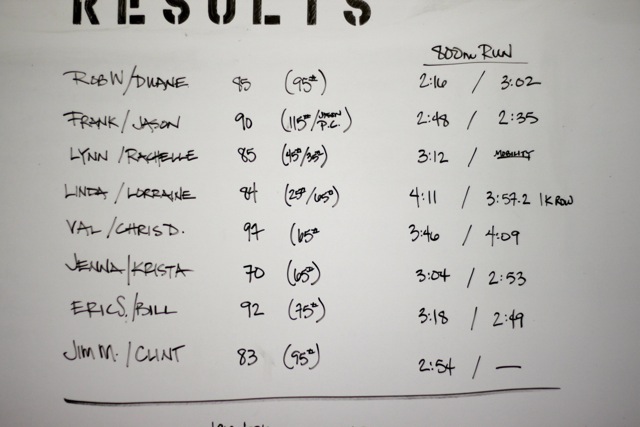 RESULTS
800m RUN
ROB W/DUANE 85 (95#) 2:16 / 3:02
FRANK/JASON 90 (115#/JASON P.C.) 2:48 / 2:35
LYNN/RACHELLE 85 (45#/35#) 3:12 / MOBILITY
LINDA/LORRAINE 84 (25#/65#) 4:11 / 3:57.2 1K ROW
VAL/CHRIS D. 97 (65# 3:46 / 4:09
JENNA/KRISTA 70 (65#) 3:04 / 2:53
ERIC S./BILL 92 (75#) 3:18 / 2:49
JIM M./CLINT 83 (95#) 2:54 / —